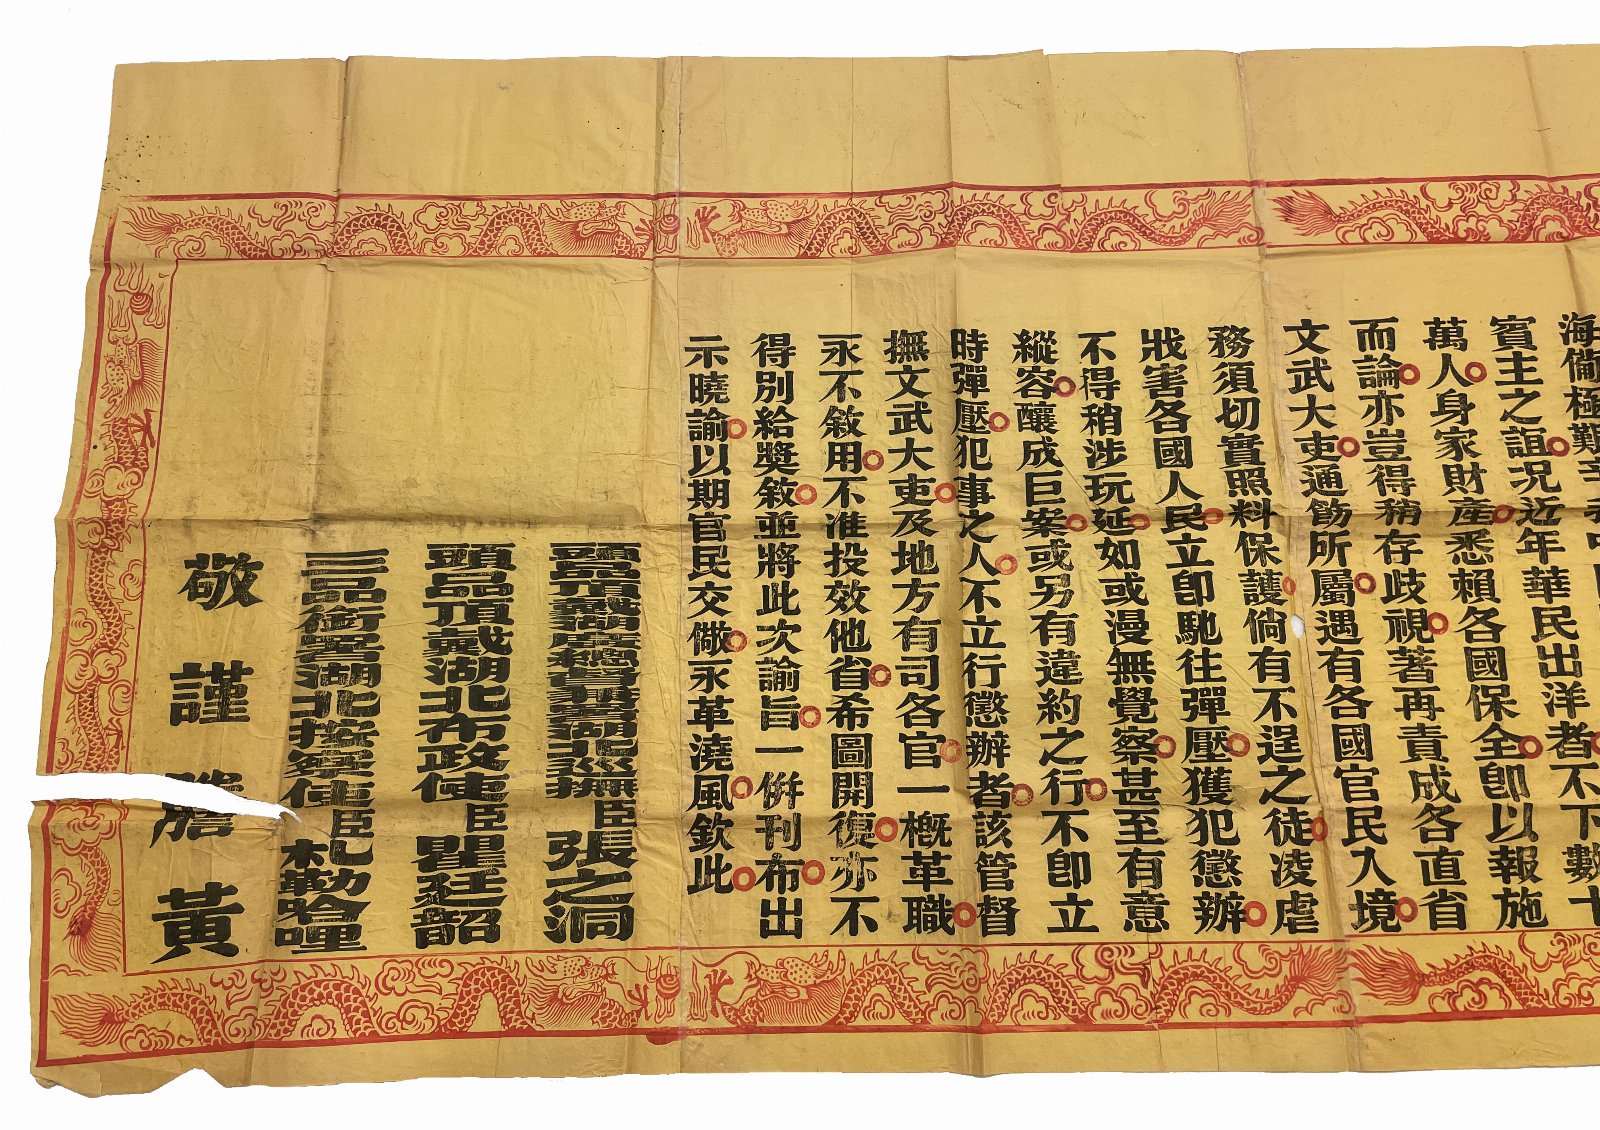 海偹極艱辛
賓主之誼況近年華民出洋者不下數十
萬人身家財產悉賴各國保全即以報施
而論亦豈得稍存歧視著再責成各直省
文武大吏通飭所屬遇有各國官民入境
務須切實照料保護倘有不逞之徒凌虐
戕害各國人民立即馳往彈壓獲犯懲辦
不得稍涉玩延如或漫無覺察甚至有意
縱容釀成巨案或另有違約之行不即立
時彈壓犯事之人不立行懲辦者該管督
撫文武大吏及地方有司各官一概革職
永不敘用不准投效他省希圖開復亦不
得別給獎敘並將此次諭旨一併刊布出
示曉諭以期官民交儆永革澆風欽此
頭品頂戴湖廣總督兼署湖北巡撫臣張之洞
頭品頂戴湖北布政使臣瞿廷韶
三品銜署湖北按察使臣札勒哈哩
敬謹謄黃